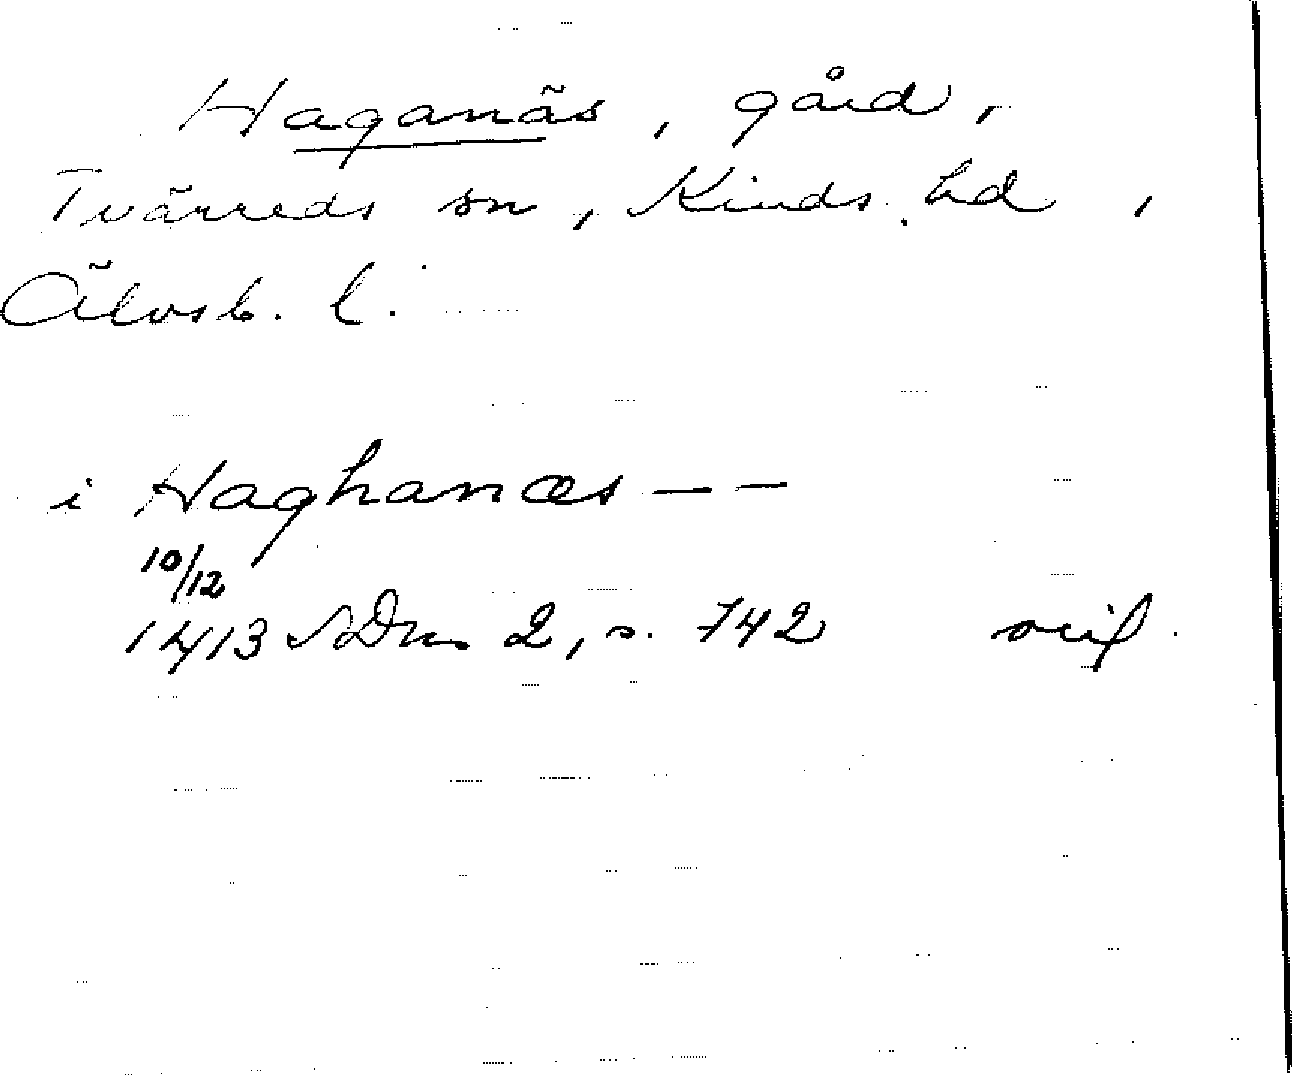 Haganäs, gård,
Tvärreds sn, Kinds hd,
Älvsb. l.
i Haghanæs — —
10/12
1413 SDns 2, s. 742 orig.